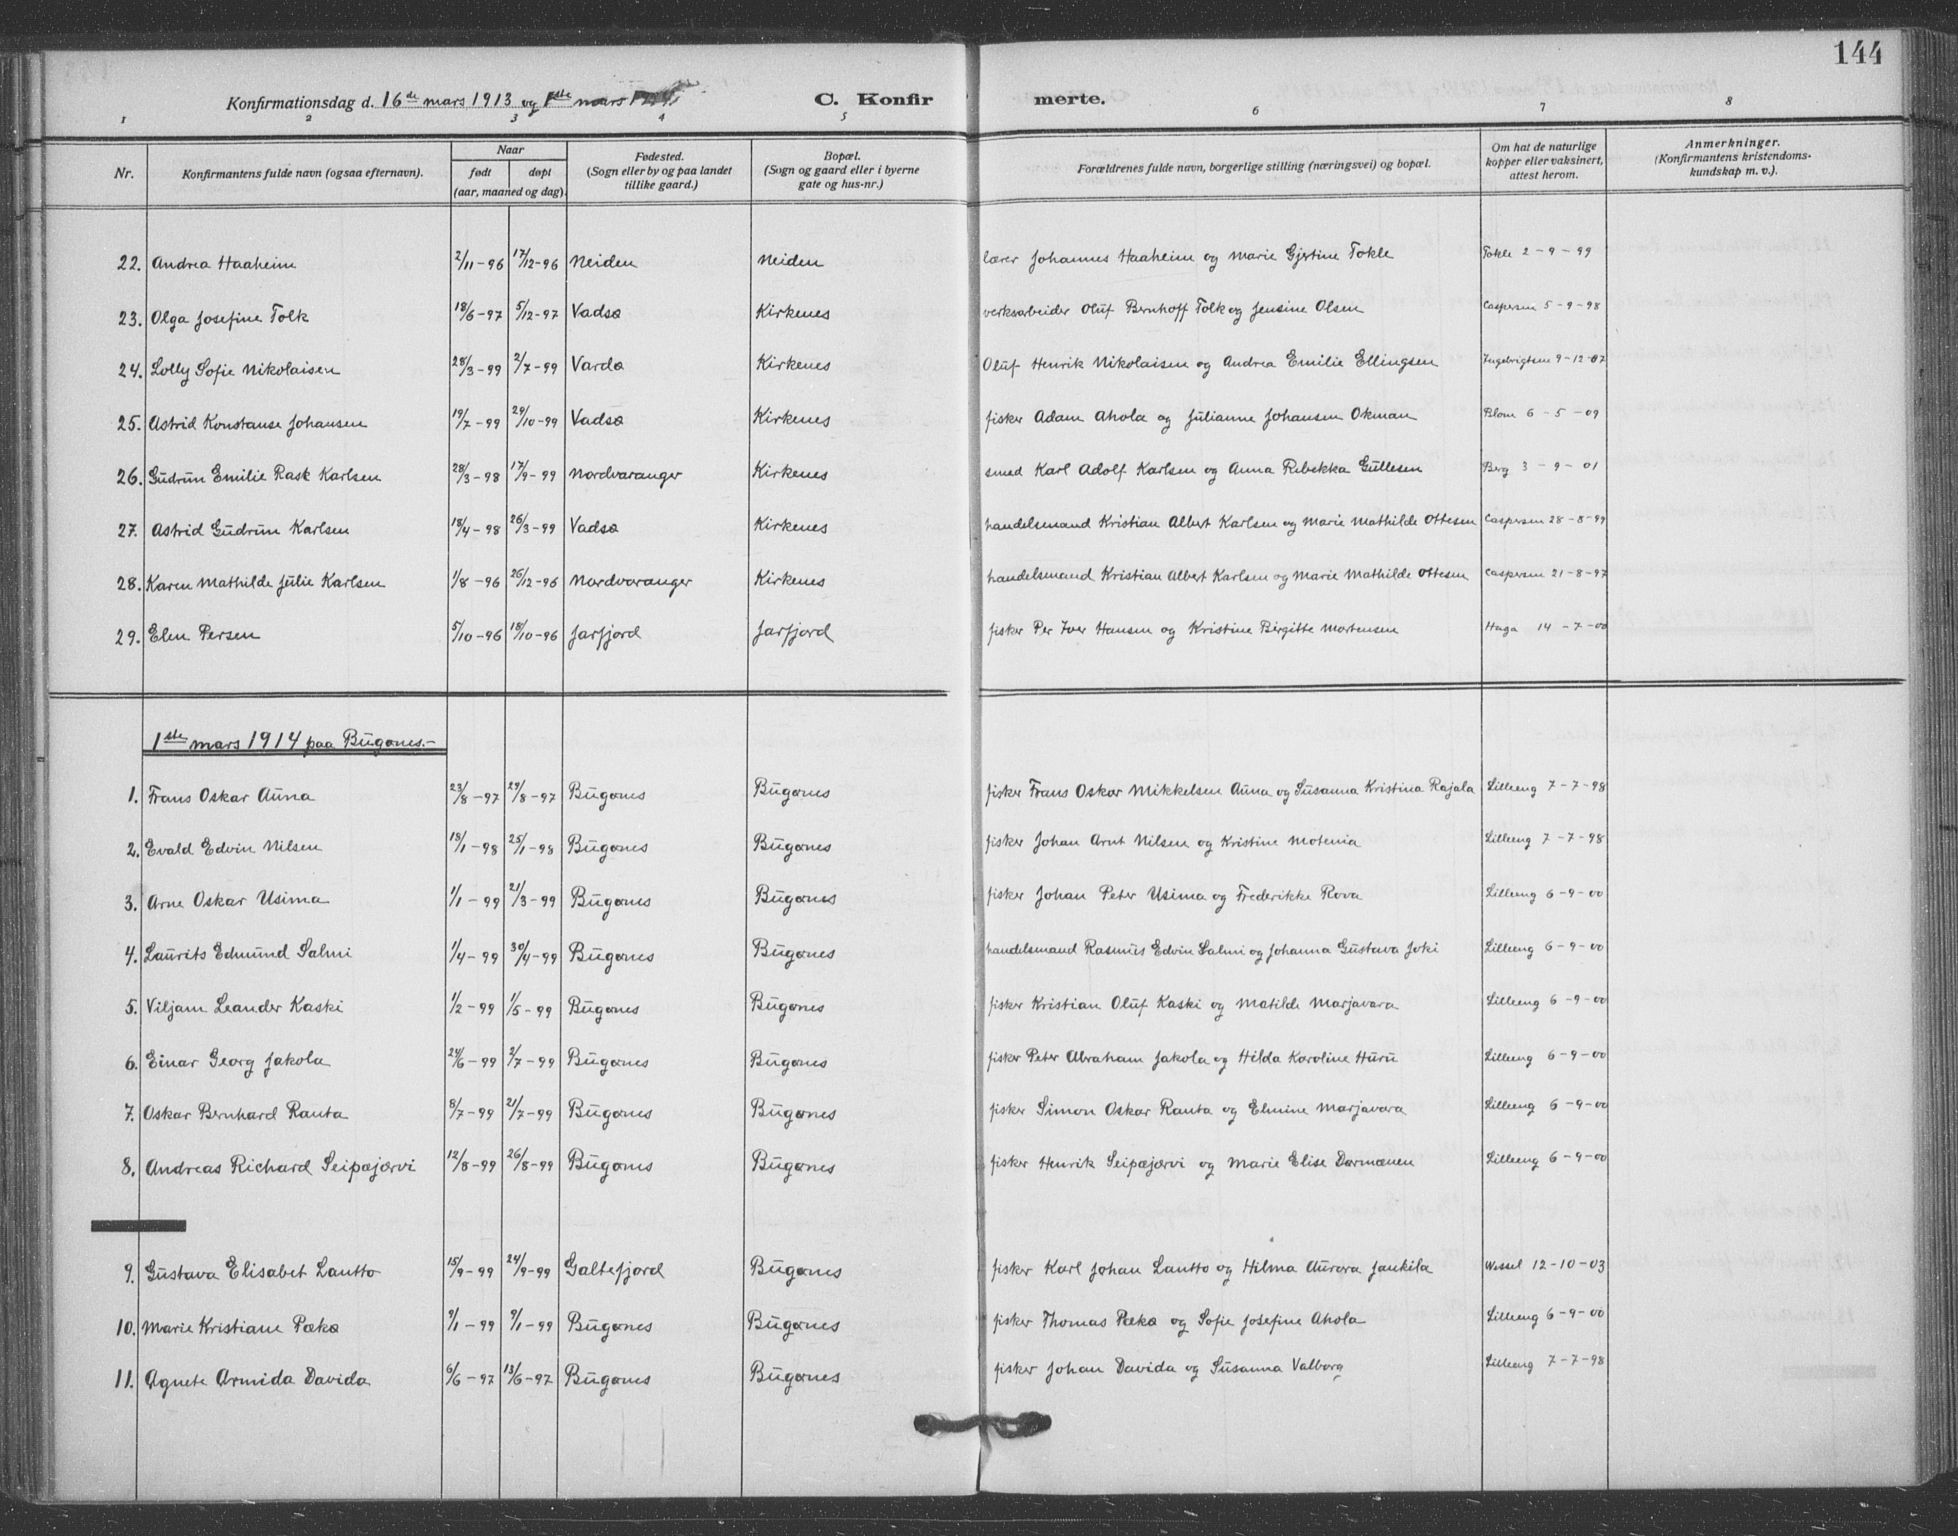 144
Konfirmationsdag d. 16de mars 1913 og 1ste mars C. Konfirmerte.
1 2 3 4 5 6 7 8
Nr. Konfirmantens fulde navn (ogsaa efternavn). Naar født døpt (aar, maaned og dag). Fødested. (Sogn eller by og paa landet tillike gaard.) Bopæl. (Sogn og gaard eller i byerne gate og hus-nr.) Forældrenes fulde navn, borgerlige stilling (næringsvei) og bopæl. Om hat de naturlige kopper eller vaksinert, attest herom. Anmerkninger. (Konfirmantens kristendoms-kundskap m. v.).
22. Andrea Haaheim 2/11-96 17/12-96 Neiden Neiden lærer Johannes Haaheim og Marie Gjertine Tokle Tokle 2-9-99
23. Olga Josefine Tolk 18/6-97 5/12-97 Vadsø Kirkenes verksarbeider Oluf Bernhoff Tolk og Jensine Olsen Caspersen 5-9-98
24. Lolly Sofie Nikolaisen 28/3-99 2/7-99 Vardø Kirkenes Oluf Henrik Nikolaisen og Andrea Emilie Ellingsen Ingebrigtsen 9-12-07
25. Astrid Konstanse Johansen 19/7-99 29/10-99 Vadsø Kirkenes fisker Adam Ahola og Julianne Johansen Okman Blom 6-5-09
26. Gudrun Emilie Rask Karlsen 28/3-98 17/9-99 Nordvaranger Kirkenes smed Karl Adolf Karlsen og Anna Rebekka Gullesen Berg 3-9-01
27. Astrid Gudrun Karlsen 18/4-98 26/3-99 Vadsø Kirkenes handelsmand Kristian Albert Karlsen og Marie Mathilde Ottesen Caspersen 28-8-99
28. Karen Mathilde Julie Karlsen 1/8-96 26/12-96 Nordvaranger Kirkenes handelsmand Kristian Albert Karlsen og Marie Mathilde Ottesen Caspersen 21-8-97
29. Elen Persen 5/10-96 18/10-96 Jarfjord Jarfjord fisker Per Iver Hansen og Kristine Birgitte Mortensen Haga 14-7-00
1ste mars 1914 paa Bugønes.-
1. Frans Oskar Auna 23/8-97 29/8-97 Bugønes Bugønes fisker Frans Oskar Mikkelsen Auna og Susanna Kristina Rajala Lilleeng 7-7-98
2. Evald Edvin Nilsen 18/1-98 25/1-98 Bugønes Bugønes fisker Johan Arnt Nilsen og Kristine Motenia Lilleeng 7-7-98
3. Arne Oskar Usima 1/1-99 21/3-99 Bugønes Bugønes fisker Johan Peter Usima og Frederikke Rova Lilleeng 6-9-00
4. Laurits Edmund Salmi 1/4-99 30/4-99 Bugønes Bugønes handelsmand Rasmus Edvin Salmi og Johanna Gustava Joki Lilleeng 6-9-00
5. Viljam Leander Kaski 1/2-99 1/5-99 Bugønes Bugønes fisker Kristian Oluf Kaski og Matilde Marjavara Lilleeng 6-9-00
6. Einar Georg Jakola 24/6-99 2/7-99 Bugønes Bugønes fisker Peter Abraham Jakola og Hilda Karoline Huru Lilleeng 6-9-00
7. Oskar Bernhard Ranta 8/7-99 21/7-99 Bugønes Bugønes fisker Simon Oskar Ranta og Elmine Marjavara Lilleeng 6-9-00
8. Andreas Richard Seipæjærvi 12/8-99 26/8-99 Bugønes Bugønes fisker Henrik Seipæjærvi og Marie Elise Dørmænen Lilleeng 6-9-00
9. Gustava Elisabet Lautto 15/9-99 24/9-99 Galtefjord Bugønes fisker Karl Johan Lautto og Hilma Aurora Jankila Wessel 12-10-03
10. Marie Kristiane Pækø 9/1-99 9/1-99 Bugønes Bugønes fisker Thomas Pækø og Sofie Josefine Ahola Lilleeng 6-9-00
11. Agnete Armida Davida 6/6-97 13/6-97 Bugønes Bugønes fisker Johan Davida og Susanna Valborg Lilleeng 7-7-98